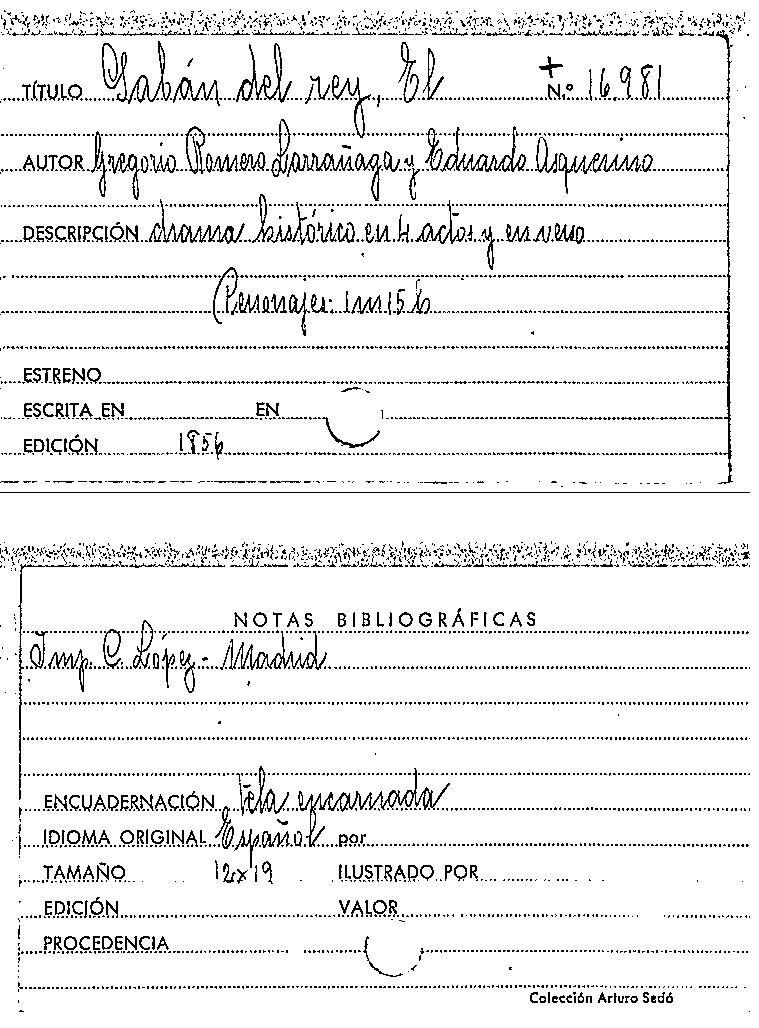 TÍTULO Gabán del rey, El + N.º 16.981
AUTOR Gregorio Romero Larrañaga y Eduardo Asquerino
DESCRIPCIÓN drama histórico en 4 actos y en verso
(Personajes: 1m 15h
ESTRENO
ESCRITA EN EN
EDICIÓN 1856
NOTAS BIBLIOGRÁFICAS
Imp. C. López - Madrid
ENCUADERNACIÓN tela encarnada
IDIOMA ORIGINAL Español por
TAMAÑO 12x19 ILUSTRADO POR
EDICIÓN VALOR
PROCEDENCIA
Colección Arturo Sedó